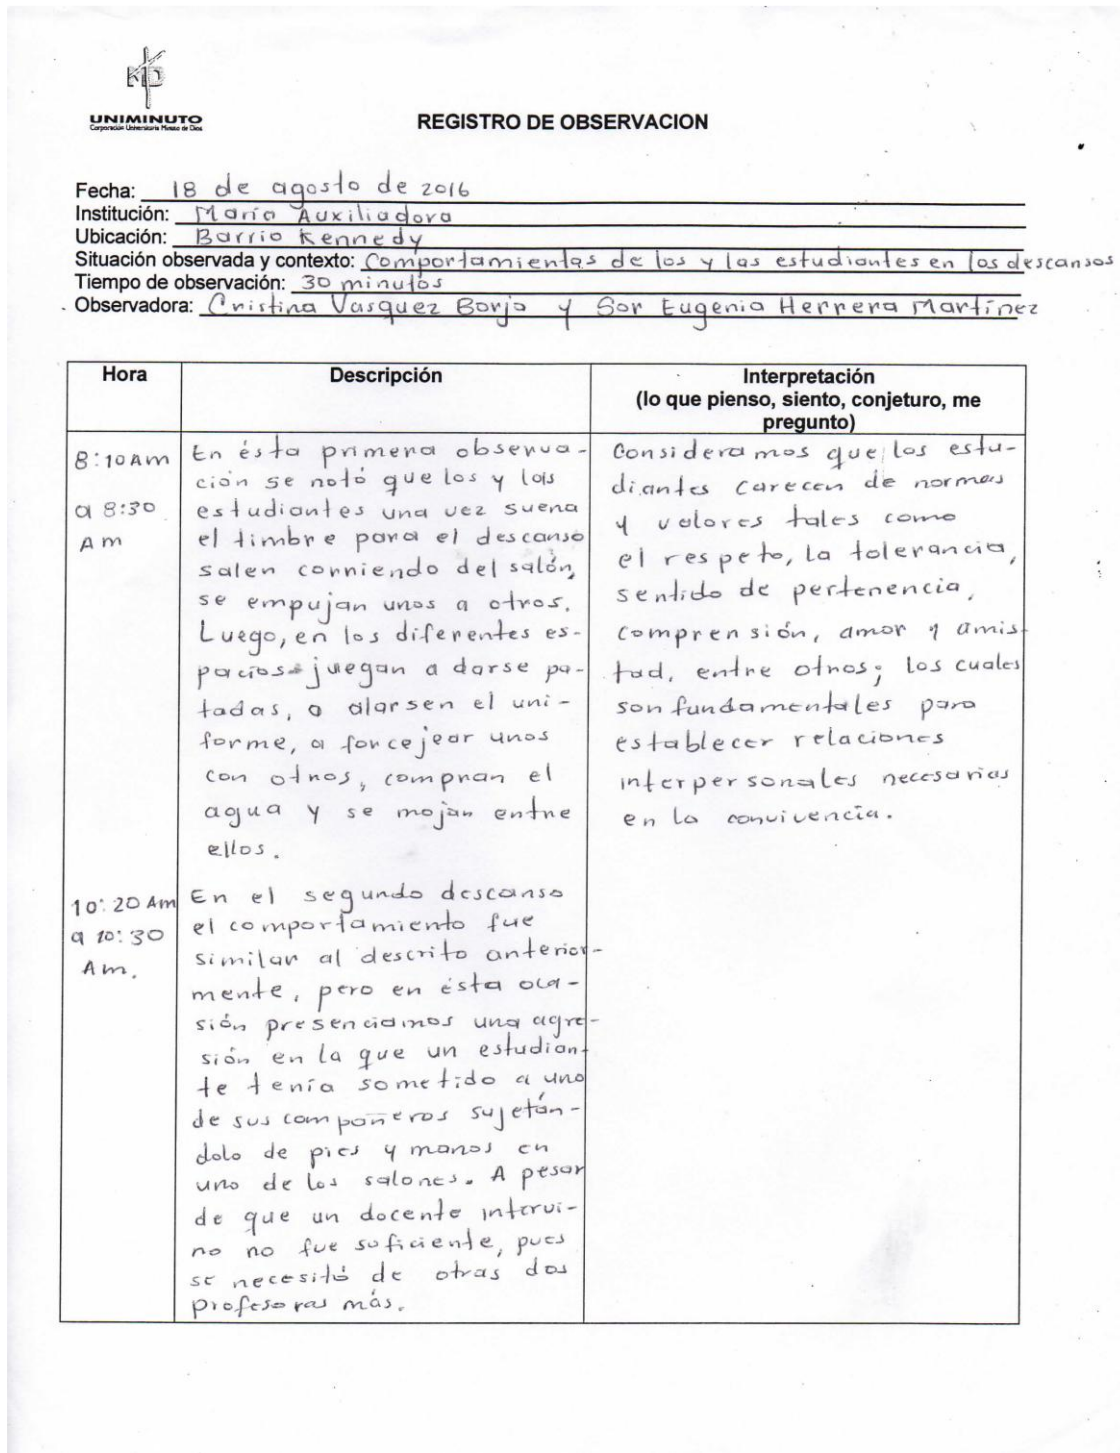 UNIMINUTO
Corporación Universitaria Minuto de Dios
REGISTRO DE OBSERVACION
Fecha: 18 de agosto de 2016
Institución: María Auxiliadora
Ubicación: Barrio Kennedy
Situación observada y contexto: Comportamientos de los y las estudiantes en los descansos
Tiempo de observación: 30 minutos
Observadora: Cristina Vasquez Borja y Sor Eugenia Herrera Martínez
Hora
Descripción
Interpretación
(lo que pienso, siento, conjeturo, me
pregunto)
8:10 Am
a 8:30
Am
En ésta primera observa-
ción se notó que los y las
estudiantes una vez suena
el timbre para el descanso
salen corriendo del salón,
se empujan unos a otros.
Luego, en los diferentes es-
pacios juegan a darse pa-
tadas, a alarsen el uni-
forme, a forcejear unos
con otros, compran el
agua y se mojan entre
ellos.
Consideramos que los estu-
diantes carecen de normas
y valores tales como
el respeto, la tolerancia,
sentido de pertenencia,
comprensión, amor y amis-
tad, entre otros; los cuales
son fundamentales para
establecer relaciones
interpersonales necesarias
en la convivencia.
10:20 Am
a 10:30
Am.
En el segundo descanso
el comportamiento fue
similar al descrito anterior-
mente, pero en ésta oca-
sión presenciamos una agre-
sión en la que un estudian-
te tenía sometido a uno
de sus compañeros sujetán-
dolo de pies y manos en
uno de los salones. A pesar
de que un docente intervi-
no no fue suficiente, pues
se necesitó de otras dos
profesoras más.